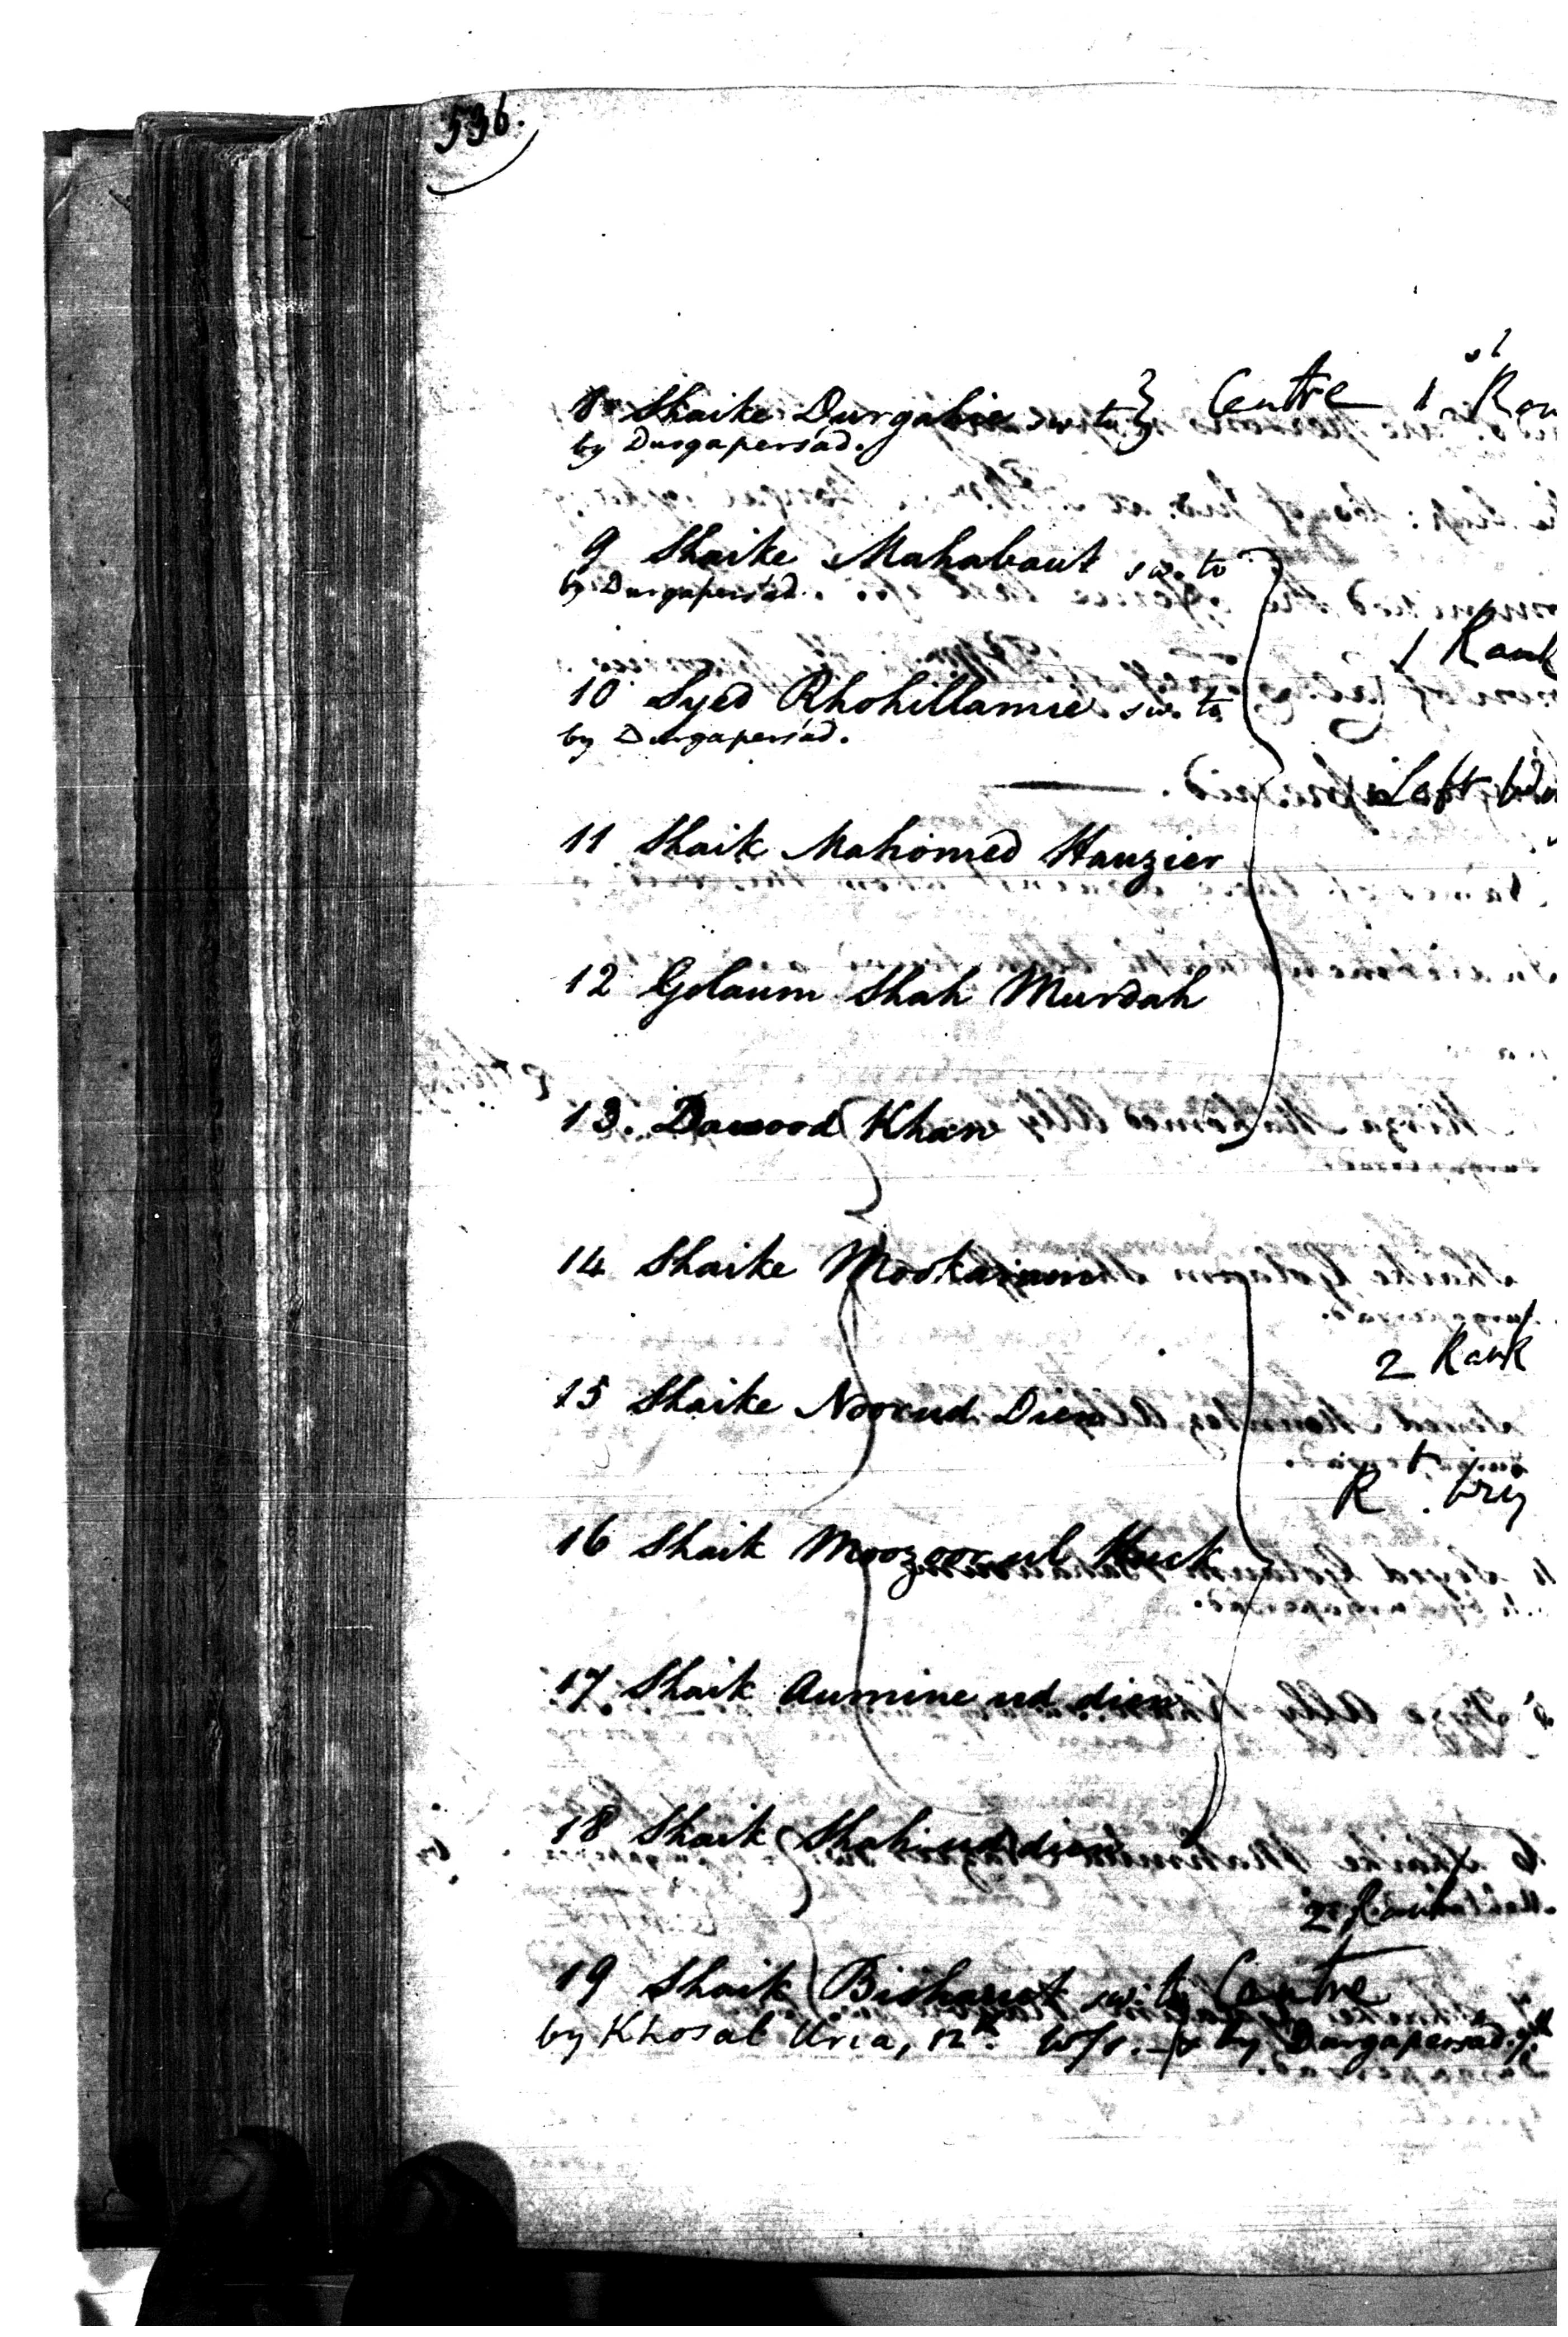 536.
8 Shaike Durgahie sw. to } Centre 1st Ran
by Durgapersad.
9 Shaike Mahabaut sw. to
by Durgapersad.
1 Rank
10 Syed Rhohillamie sw. to
by Durgapersad.
Left
11 Shaik Mahomed Hauzier
12 Golaum Shah Murdah
13. Dawood Khan
14 Shaike
2 Rank
15 Shaike Noorud Dien
R
16 Shaik Moozoorul Huck
17 Shaik Aumine ud dien
18 Shaik Shahiuddien
2 Rank
19 Shaik Bisharut sw. to Centre
by Khosal Uria, 12th. Wfs. by Durgapersad.